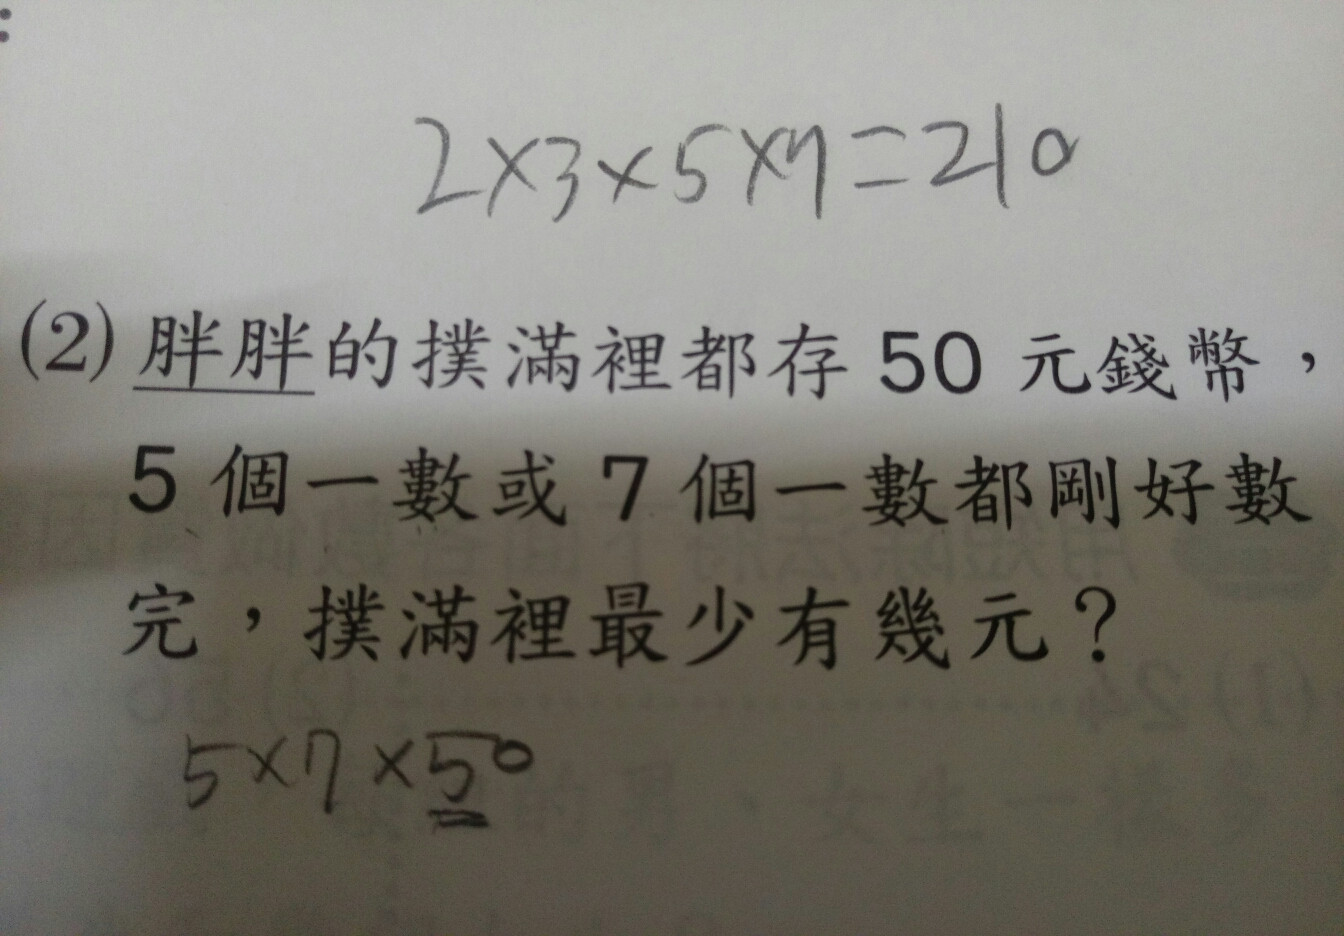 2×3×5×7=210
(2) 胖胖的撲滿裡都存 50 元錢幣，
5 個一數或 7 個一數都剛好數
完，撲滿裡最少有幾元？
5×7×50